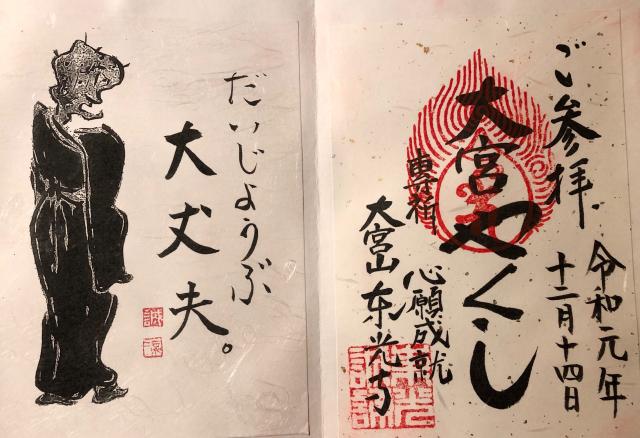 だいじょうぶ
大丈夫。
ご参拝
令和元年
十二月十四日
大宮やくし
専祈
心願成就
大宮山東光寺